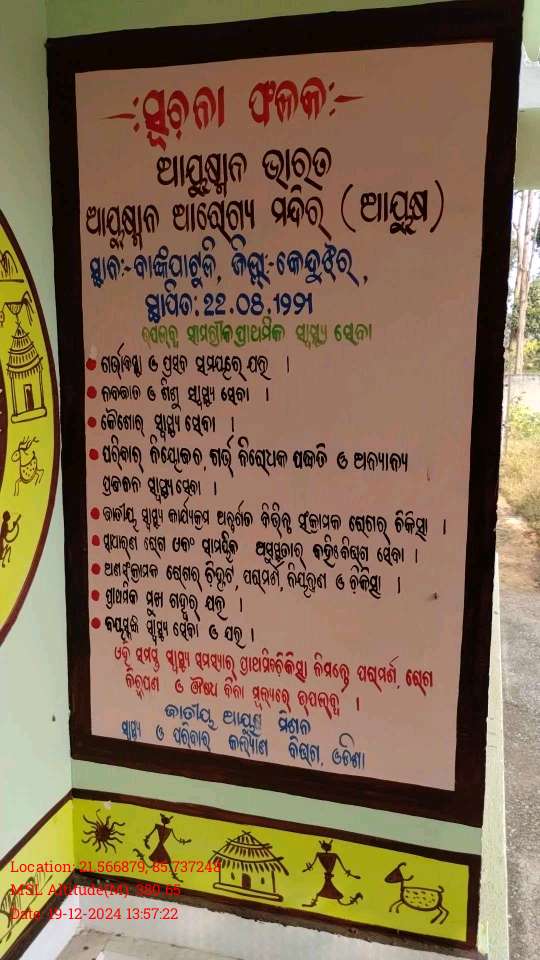 ସୂଚନା ଫଳକ
ଆୟୁଷ୍ମାନ ଭାରତ
ଆୟୁଷ୍ମାନ ଆରୋଗ୍ୟ ମନ୍ଦିର (ଆୟୁଷ)
ସ୍ଥାନ:- ବାଙ୍କିପାଟୁଳି, ଜିଲ୍ଲା:- କେନ୍ଦୁଝର,
ସ୍ଥାପିତ:
ଉପଲବ୍ଧ ସାମଗ୍ରୀକ ପ୍ରାଥମିକ ସ୍ୱାସ୍ଥ୍ୟ ସେବା
ଗର୍ଭାବସ୍ଥା ଓ ପ୍ରସବ ସମୟରେ ଯତ୍ନ ।
ନବଜାତ ଓ ଶିଶୁ ସ୍ୱାସ୍ଥ୍ୟ ସେବା ।
କୈଶୋର ସ୍ୱାସ୍ଥ୍ୟ ସେବା ।
ପରିବାର ନିୟୋଜନ, ଗର୍ଭ ନିରୋଧକ ପଦ୍ଧତି ଓ ଅନ୍ୟାନ୍ୟ
ପ୍ରଜନନ ସ୍ୱାସ୍ଥ୍ୟ ସେବା ।
ଜାତୀୟ ସ୍ୱାସ୍ଥ୍ୟ କାର୍ଯ୍ୟକ୍ରମ ଅନ୍ତର୍ଗତ ବିଭିନ୍ନ ସଂକ୍ରାମକ ରୋଗର ଚିକିତ୍ସା ।
ସାଧାରଣ ରୋଗ ଏବଂ ସାମୟିକ ଅସୁସ୍ଥତାର ବହିଃବିଭାଗ ସେବା ।
ଅଣସଂକ୍ରାମକ ରୋଗର ଚିହ୍ନଟ, ପରାମର୍ଶ, ନିୟନ୍ତ୍ରଣ ଓ ଚିକିତ୍ସା ।
ପ୍ରାଥମିକ ମୁଖ ଗହ୍ୱର ଯତ୍ନ ।
ବୟସ୍କଙ୍କ ସ୍ୱାସ୍ଥ୍ୟ ସେବା ଓ ଯତ୍ନ ।
ଏହି ସମସ୍ତ ସ୍ୱାସ୍ଥ୍ୟ ସମସ୍ୟାର ପ୍ରାଥମିକ ଚିକିତ୍ସା ନିମନ୍ତେ ପରାମର୍ଶ, ରୋଗ
ନିରୂପଣ ଓ ଔଷଧ ବିନା ମୂଲ୍ୟରେ ଉପଲବ୍ଧ ।
ଜାତୀୟ ଆୟୁଷ ମିଶନ
ସ୍ୱାସ୍ଥ୍ୟ ଓ ପରିବାର କଲ୍ୟାଣ ବିଭାଗ, ଓଡିଶା
Location: 21.566879, 85.737248
MSL Altitude(M): 380.65
Date: 19-12-2024 13:57:22